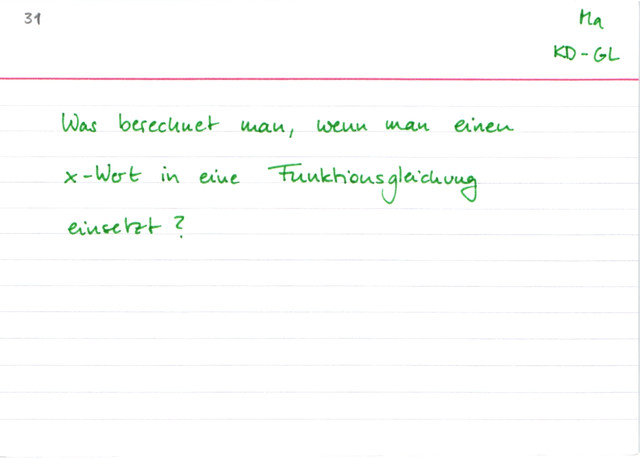 31
Ma
KD-GL
Was berechnet man, wenn man einen
x-Wert in eine Funktionsgleichung
einsetzt?